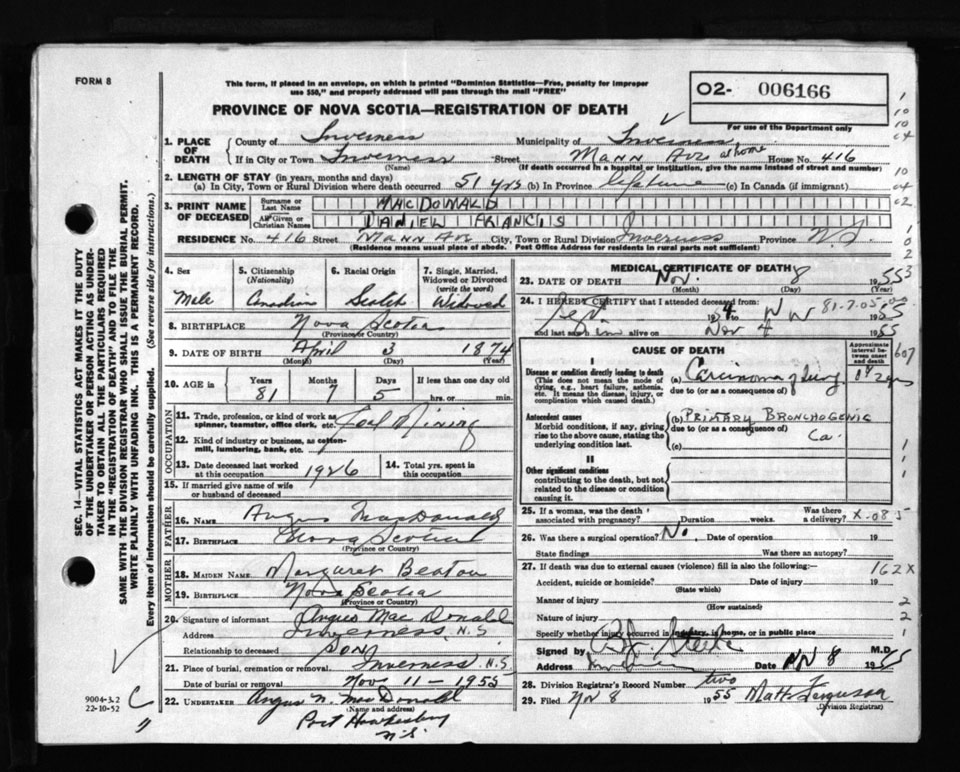 FORM 8
This form, if placed in an envelope, on which is printed "Dominion Statistics—Free, penalty for improper
use $50," and properly addressed will pass through the mail "FREE"
PROVINCE OF NOVA SCOTIA—REGISTRATION OF DEATH
O2- 006166
For use of the Department only
1. PLACE OF DEATH
County of Inverness Municipality of Inverness
If in City or Town Inverness Street Mann Ave at home House No. 416
(Name) (If death occurred in a hospital or institution, give the name instead of street and number)
2. LENGTH OF STAY (in years, months and days)
(a) In City, Town or Rural Division where death occurred 51 yrs (b) In Province lifetime (c) In Canada (if immigrant)
3. PRINT NAME OF DECEASED
Surname or Last Name MACDONALD
All Given or Christian Names DANIEL FRANCIS
RESIDENCE No. 416 Street Mann Ave City, Town or Rural Division Inverness Province N.S.
(Residence means usual place of abode. Post Office Address for residents in rural parts not sufficient)
4. Sex
Male
5. Citizenship (Nationality)
Canadian
6. Racial Origin
Scotch
7. Single, Married, Widowed or Divorced (write the word)
Widowed
8. BIRTHPLACE Nova Scotia
(Province or Country)
9. DATE OF BIRTH April 3 1874
(Month) (Day) (Year)
10. AGE in Years Months Days If less than one day old
81 7 5 hrs. or min.
OCCUPATION
11. Trade, profession, or kind of work as spinner, teamster, office clerk, etc. Coal Mining
12. Kind of industry or business, as cotton-mill, lumbering, bank, etc.
13. Date deceased last worked at this occupation 1926
14. Total yrs. spent in this occupation
15. If married give name of wife or husband of deceased
FATHER
16. NAME Angus MacDonald
17. BIRTHPLACE Nova Scotia
(Province or Country)
MOTHER
18. MAIDEN NAME Margaret Beaton
19. BIRTHPLACE Nova Scotia
(Province or Country)
20. Signature of informant Angus MacDonald
Address Inverness N.S
Relationship to deceased SON
21. Place of burial, cremation or removal Inverness N.S
Date of burial or removal Nov 11 - 1955
22. UNDERTAKER Angus N. MacDonald
(Name and address)
Port Hawkesbury
N.S.
MEDICAL CERTIFICATE OF DEATH
23. DATE OF DEATH Nov. 8 1955
(Month) (Day) (Year)
24. I HEREBY CERTIFY that I attended deceased from:
and last saw him alive on Nov 4 1955
CAUSE OF DEATH
Approximate interval between onset and death
I
Disease or condition directly leading to death
(This does not mean the mode of dying, e.g., heart failure, asthenia, etc. It means the disease, injury, or complication which caused death.)
(a) Carcinoma of lung 2 yrs
due to (or as a consequence of)
Antecedent causes
Morbid conditions, if any, giving rise to the above cause, stating the underlying condition last.
(b) PRIMARY BRONCHOGENIC
due to (or as a consequence of) Ca.
(c)
II
Other significant conditions
contributing to the death, but not related to the disease or condition causing it.
25. If a woman, was the death associated with pregnancy? Duration weeks. Was there a delivery? X-085
26. Was there a surgical operation? No. Date of operation 19
State findings Was there an autopsy?
27. If death was due to external causes (violence) fill in also the following:— 162X
Accident, suicide or homicide? Date of injury 19
(State which)
Manner of injury
(How sustained)
Nature of injury
Specify whether injury occurred in industry, in home, or in public place
Signed by M.D.
Address Date Nov 8 1955
28. Division Registrar's Record Number two
29. Filed Nov 8 1955 Matt Ferguson
(Division Registrar)
SEC. 14—VITAL STATISTICS ACT MAKES IT THE DUTY
OF THE UNDERTAKER OR PERSON ACTING AS UNDER-
TAKER TO OBTAIN ALL THE PARTICULARS REQUIRED
IN THE "REGISTRATION OF DEATH" AND TO FILE THE
SAME WITH THE DIVISION REGISTRAR WHO SHALL ISSUE THE BURIAL PERMIT.
WRITE PLAINLY WITH UNFADING INK. THIS IS A PERMANENT RECORD.
Every item of information should be carefully supplied. (See reverse side for instructions.)
9004-3.2
22-10-52